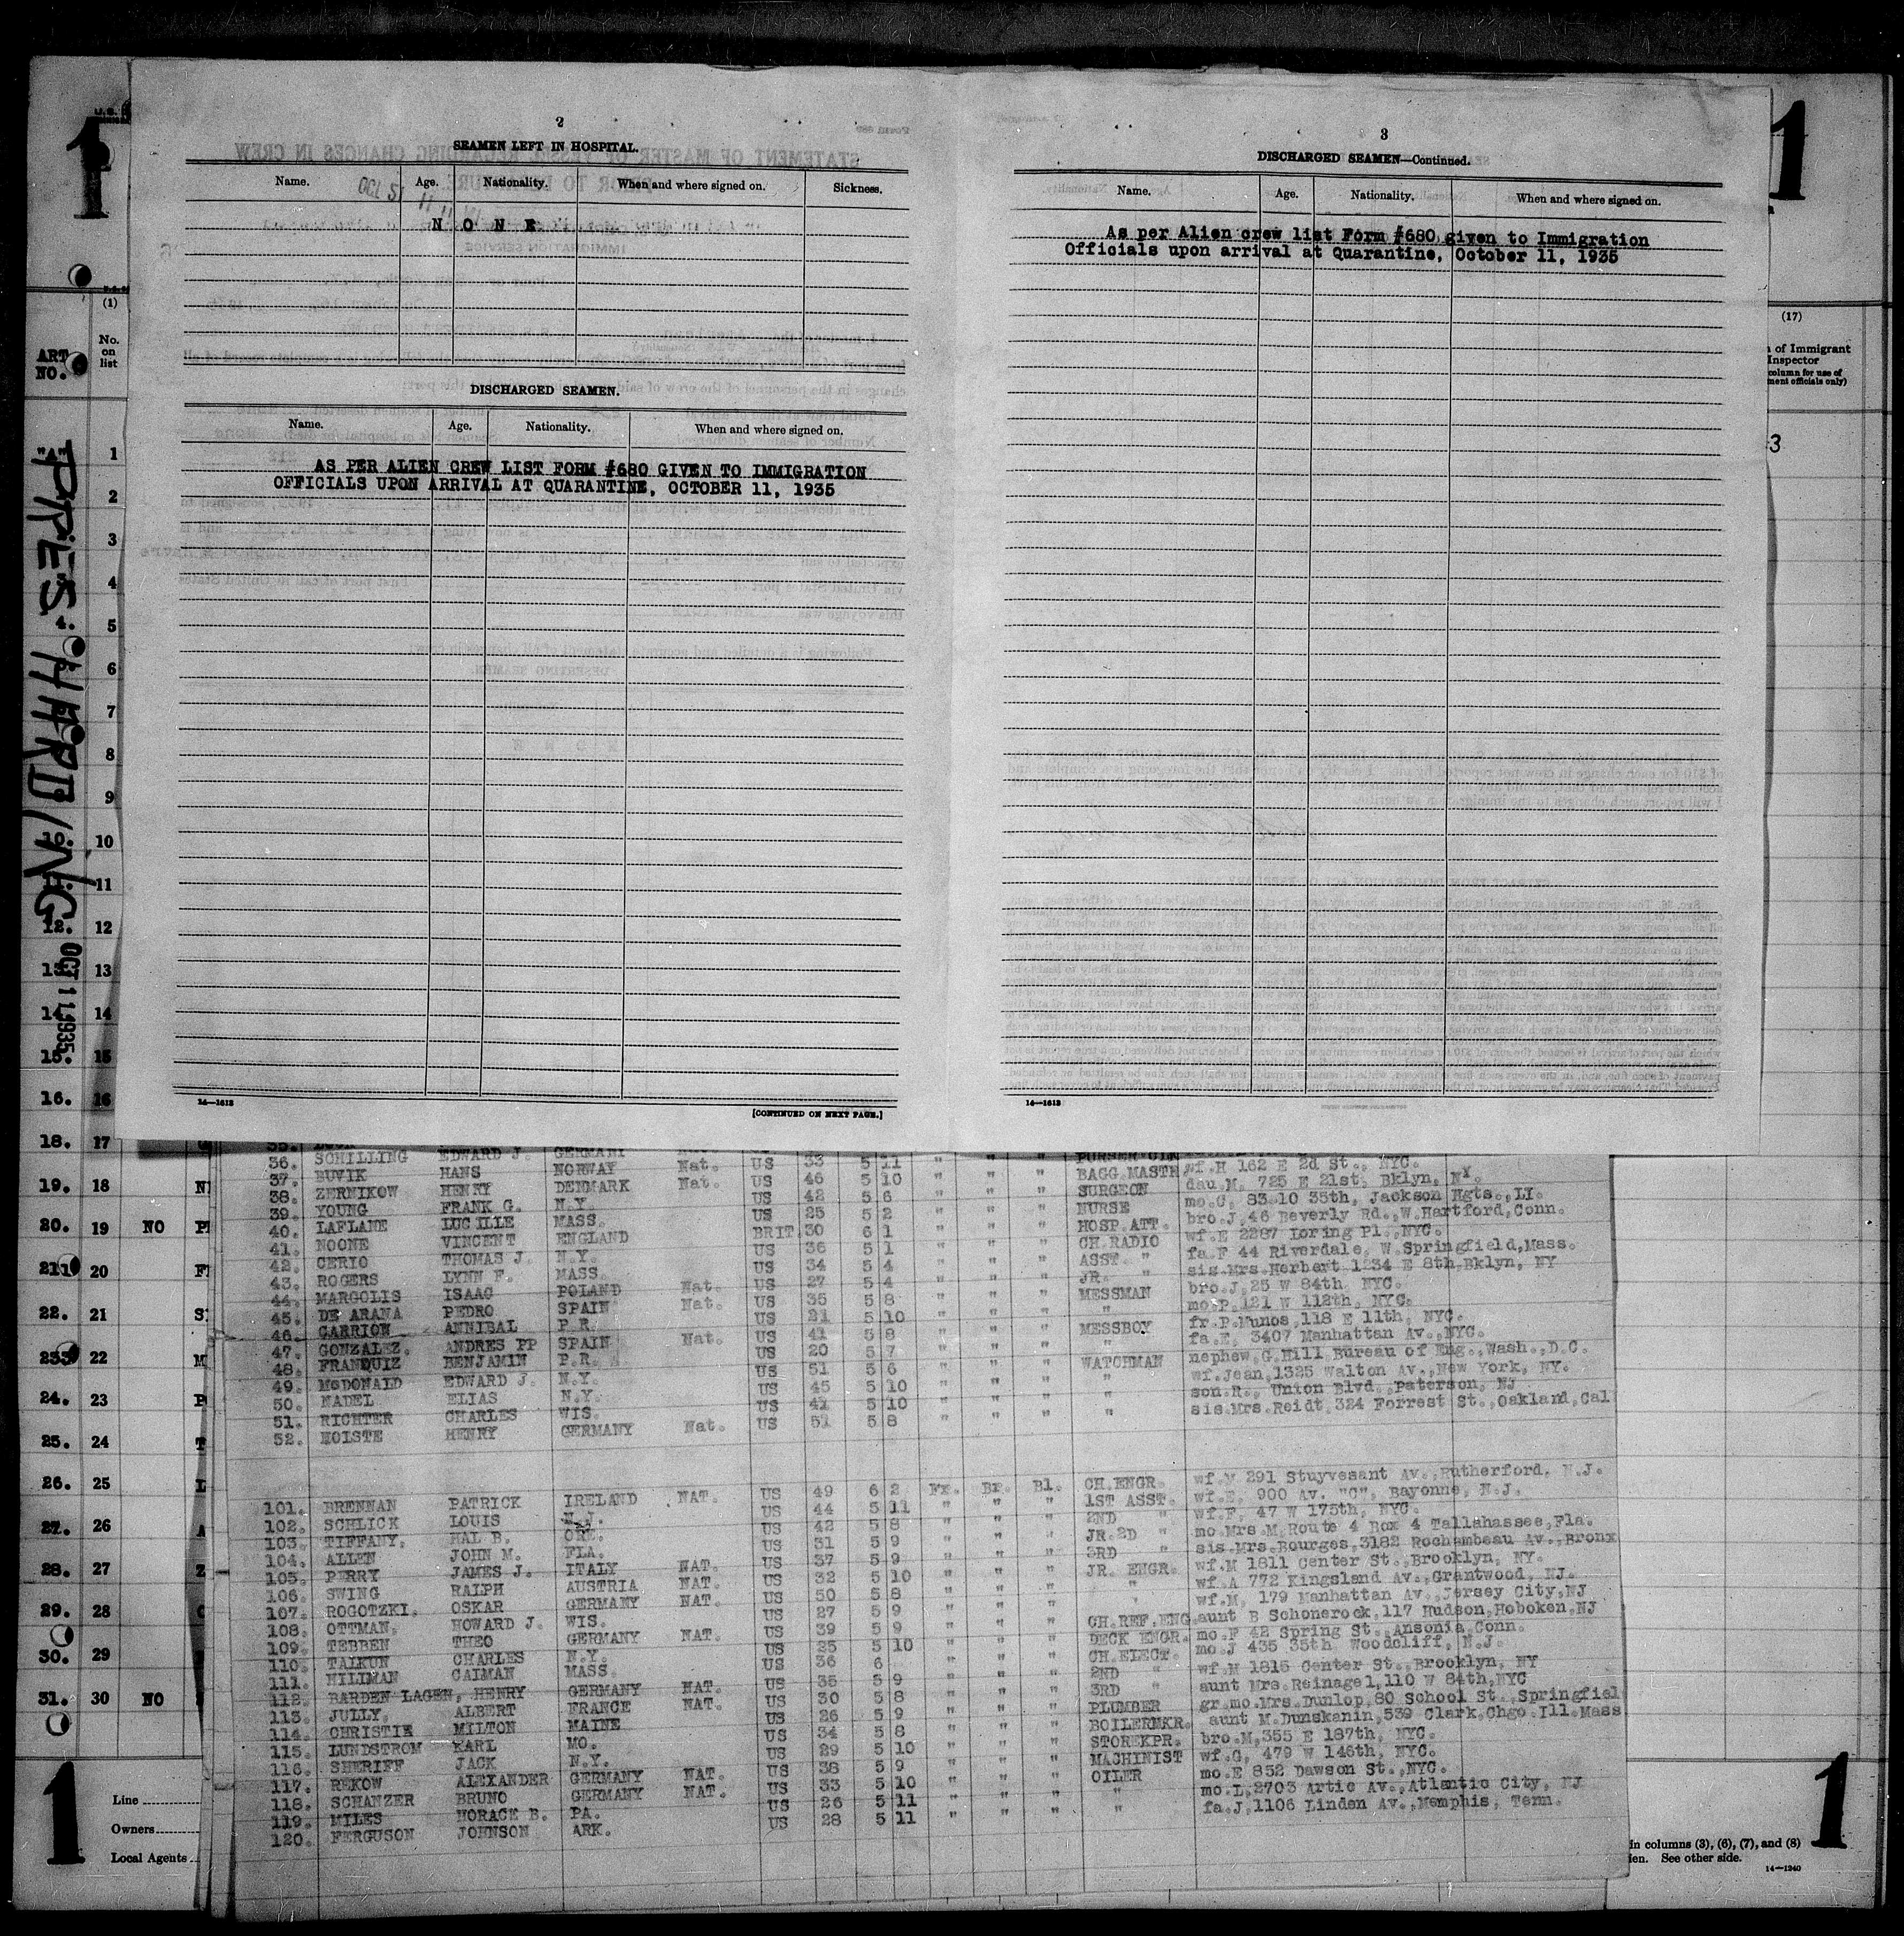 2
SEAMEN LEFT IN HOSPITAL.
Name. Age. Nationality. When and where signed on. Sickness.
N O N E
DISCHARGED SEAMEN.
Name. Age. Nationality. When and where signed on.
AS PER ALIEN CREW LIST FORM #680 GIVEN TO IMMIGRATION
OFFICIALS UPON ARRIVAL AT QUARANTINE, OCTOBER 11, 1935
14—1613
[CONTINUED ON NEXT PAGE.]
3
DISCHARGED SEAMEN—Continued.
Name. Age. Nationality. When and where signed on.
As per Alien crew list Form #680 given to Immigration
Officials upon arrival at Quarantine, October 11, 1935
14—1613
1
1
(1)
No.
on
list
ART
NO.
"A"
1
2
3
4
4. 5
6
7
8
9
10. 10
11
12. 12
13. 13
14. 14
15. 15
16. 16
18. 17
19. 18
20. 19 NO
211 20
22. 21
233 22
24. 23
25. 24
26. 25
27. 26
28. 27
29. 28
30. 29
31. 30 NO
OCT 11 1935
(17)
of Immigrant
Inspector
column for use of
ment officials only)
3
PURSER
36. SCHILLING EDWARD J. GERMANY Nat. US 33 5 11 " " " BAGG.MASTR wf.H 162 E 2d St., NYC.
37. BUVIK HANS NORWAY Nat. US 46 5 10 " " " SURGEON dau.M. 725 E 21st. Bklyn, NY.
38. ZERNIKOW HENRY DENMARK Nat. US 42 5 6 " " " NURSE mo.C. 83-10 35th, Jackson Hgts., LI.
39. YOUNG FRANK G. N.Y. US 25 5 2 " " " HOSP.ATT. bro.J.46 Beverly Rd., W.Hartford,Conn.
40. LAFLANE LUCILLE MASS. BRIT. 30 6 1 " " " CH.RADIO wf.E 2287 Loring Pl.,NYC.
41. NOONE VINCENT ENGLAND US 36 5 1 " " " ASST. " fa.F 44 Riverdale, W.Springfield,Mass.
42. CERIO THOMAS J. N.Y. US 34 5 4 " " " JR. " sis.Mrs.Herbert 1234 E 8th,Bklyn, NY
43. ROGERS LYNN F. MASS. US 27 5 4 " " " MESSMAN bro.J.25 W 84th, NYC.
44. MARGOLIS ISAAC POLAND Nat. US 35 5 8 " " " " mo.P.121 W 112th, NYC.
45. DE ARANA PEDRO SPAIN Nat. US 21 5 10 " " " MESSBOY fr.P.Munos,118 E 11th, NYC.
46. CARRION ANNIBAL P.R. US 41 5 8 " " " " fa.E. 3407 Manhattan Av.,NYC.
47. GONZALEZ. ANDRES PP SPAIN Nat. US 20 5 7 " " " WATCHMAN nephew,G.Hill Bureau of Eng.,Wash.,D.C.
48. FRANQUIZ BENJAMIN P.R. US 51 5 6 " " " " wf.Jean,1325 Walton Av.,New York, NY.
49. McDONALD EDWARD J. N.Y. US 45 5 10 " " " " son.R., Union Blvd.,Paterson, NJ
50. NADEL ELIAS N.Y. US 41 5 10 " " " " sis.Mrs.Reidt,324 Forrest St.,Oakland,Cal
51. RICHTER CHARLES WIS. US 51 5 8
52. HOLSTE HENRY GERMANY Nat.
US 49 6 2 Fr. Br. Bl. CH.ENGR. wf.M 291 Stuyvesant Av.,Rutherford, N.J.
101. BRENNAN PATRICK IRELAND NAT. US 44 5 11 " " " 1ST ASST. wf.E. 900 Av. "C", Bayonne, N.J.
102. SCHLICK LOUIS N.J. US 42 5 8 " " " 2ND " wf.F, 47 W 175th, NYC.
103. TIFFANY, HAL B. ORE. US 31 5 9 " " " JR.2D " mo.Mrs.M,Route 4 Box 4 Tallahassee,Fla.
104. ALLEN JOHN M. FLA. US 37 5 9 " " " 3RD " sis.Mrs.Bourges,3182 Rochambeau Av.,Bronx
105. PERRY JAMES J. ITALY NAT. US 32 5 10 " " " JR. ENGR. wf.M 1811 Center St.,Brooklyn, NY.
106. SWING RALPH AUSTRIA NAT. US 50 5 8 " " " " wf.A 772 Kingsland Av.,Grantwood, NJ.
107. ROGOTZKI. OSKAR GERMANY NAT. US 27 5 9 " " " " wf.M, 179 Manhattan Av.,Jersey City,NJ
108. OTTMAN, HOWARD J. WIS. US 39 5 9 " " " CH.REF.ENG. aunt B Schonerock,117 Hudson,Hoboken,NJ
109. TEBBEN THEO GERMANY NAT. US 25 5 10 " " " DECK ENGR. mo.F 42 Spring St.,Ansonia,Conn.
110. TALKUN CHARLES N.Y. US 36 6 " " " CH.ELECT. mo.J 435 35th Woodcliff, N.J.
111. HILLMAN CAIMAN MASS. US 35 5 9 " " " 2ND " wf.M 1815 Center St.,Brooklyn, NY
112. BARDEN LAGEN, HENRY GERMANY NAT. US 30 5 8 " " " 3RD " aunt Mrs.Reinagel,110 W 84th,NYC
113. JULLY, ALBERT FRANCE NAT. US 26 5 9 " " " PLUMBER gr.mo.Mrs.Dunlop,80 School St.,Springfiel
114. CHRISTIE MILTON MAINE US 34 5 8 " " " BOILERMKR. aunt M.Dunskanin,539 Clark,Chgo.Ill. Mass
115. LUNDSTROM KARL MO. US 29 5 10 " " " STOREKPR. bro.M,355 E 187th, NYC.
116. SHERIFF JACK N.Y. US 38 5 9 " " " MACHINIST wf.G, 479 W 146th, NYC.
117. REKOW ALEXANDER GERMANY NAT. US 33 5 10 " " " OILER mo.E 852 Dawson St.,NYC.
118. SCHANZER BRUNO GERMANY NAT. US 26 5 11 " " " " mo.L.2703 Artic Av.,Atlantic City, NJ
119. MILES HORACE B. PA. US 28 5 11 " " " " fa.J,1106 Linden Av.,Memphis, Tenn.
120. FERGUSON JOHNSON ARK.
Line
Owners
Local Agents
1
In columns (3), (6), (7), and (8)
See other side.
14—1240
1